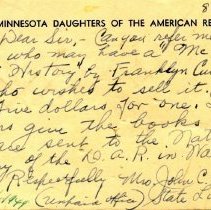 8
MINNESOTA DAUGHTERS OF THE AMERICAN RE
Dear Sir, - Can you refer me
who may have a "Mc
History" by Franklyn Cu
who wishes to sell it.
Five dollars for one.
give the books
are sent to the Nat
of the D.A.R. in Wa
Respectfully Mrs. John C.
(Unpaid office) State L